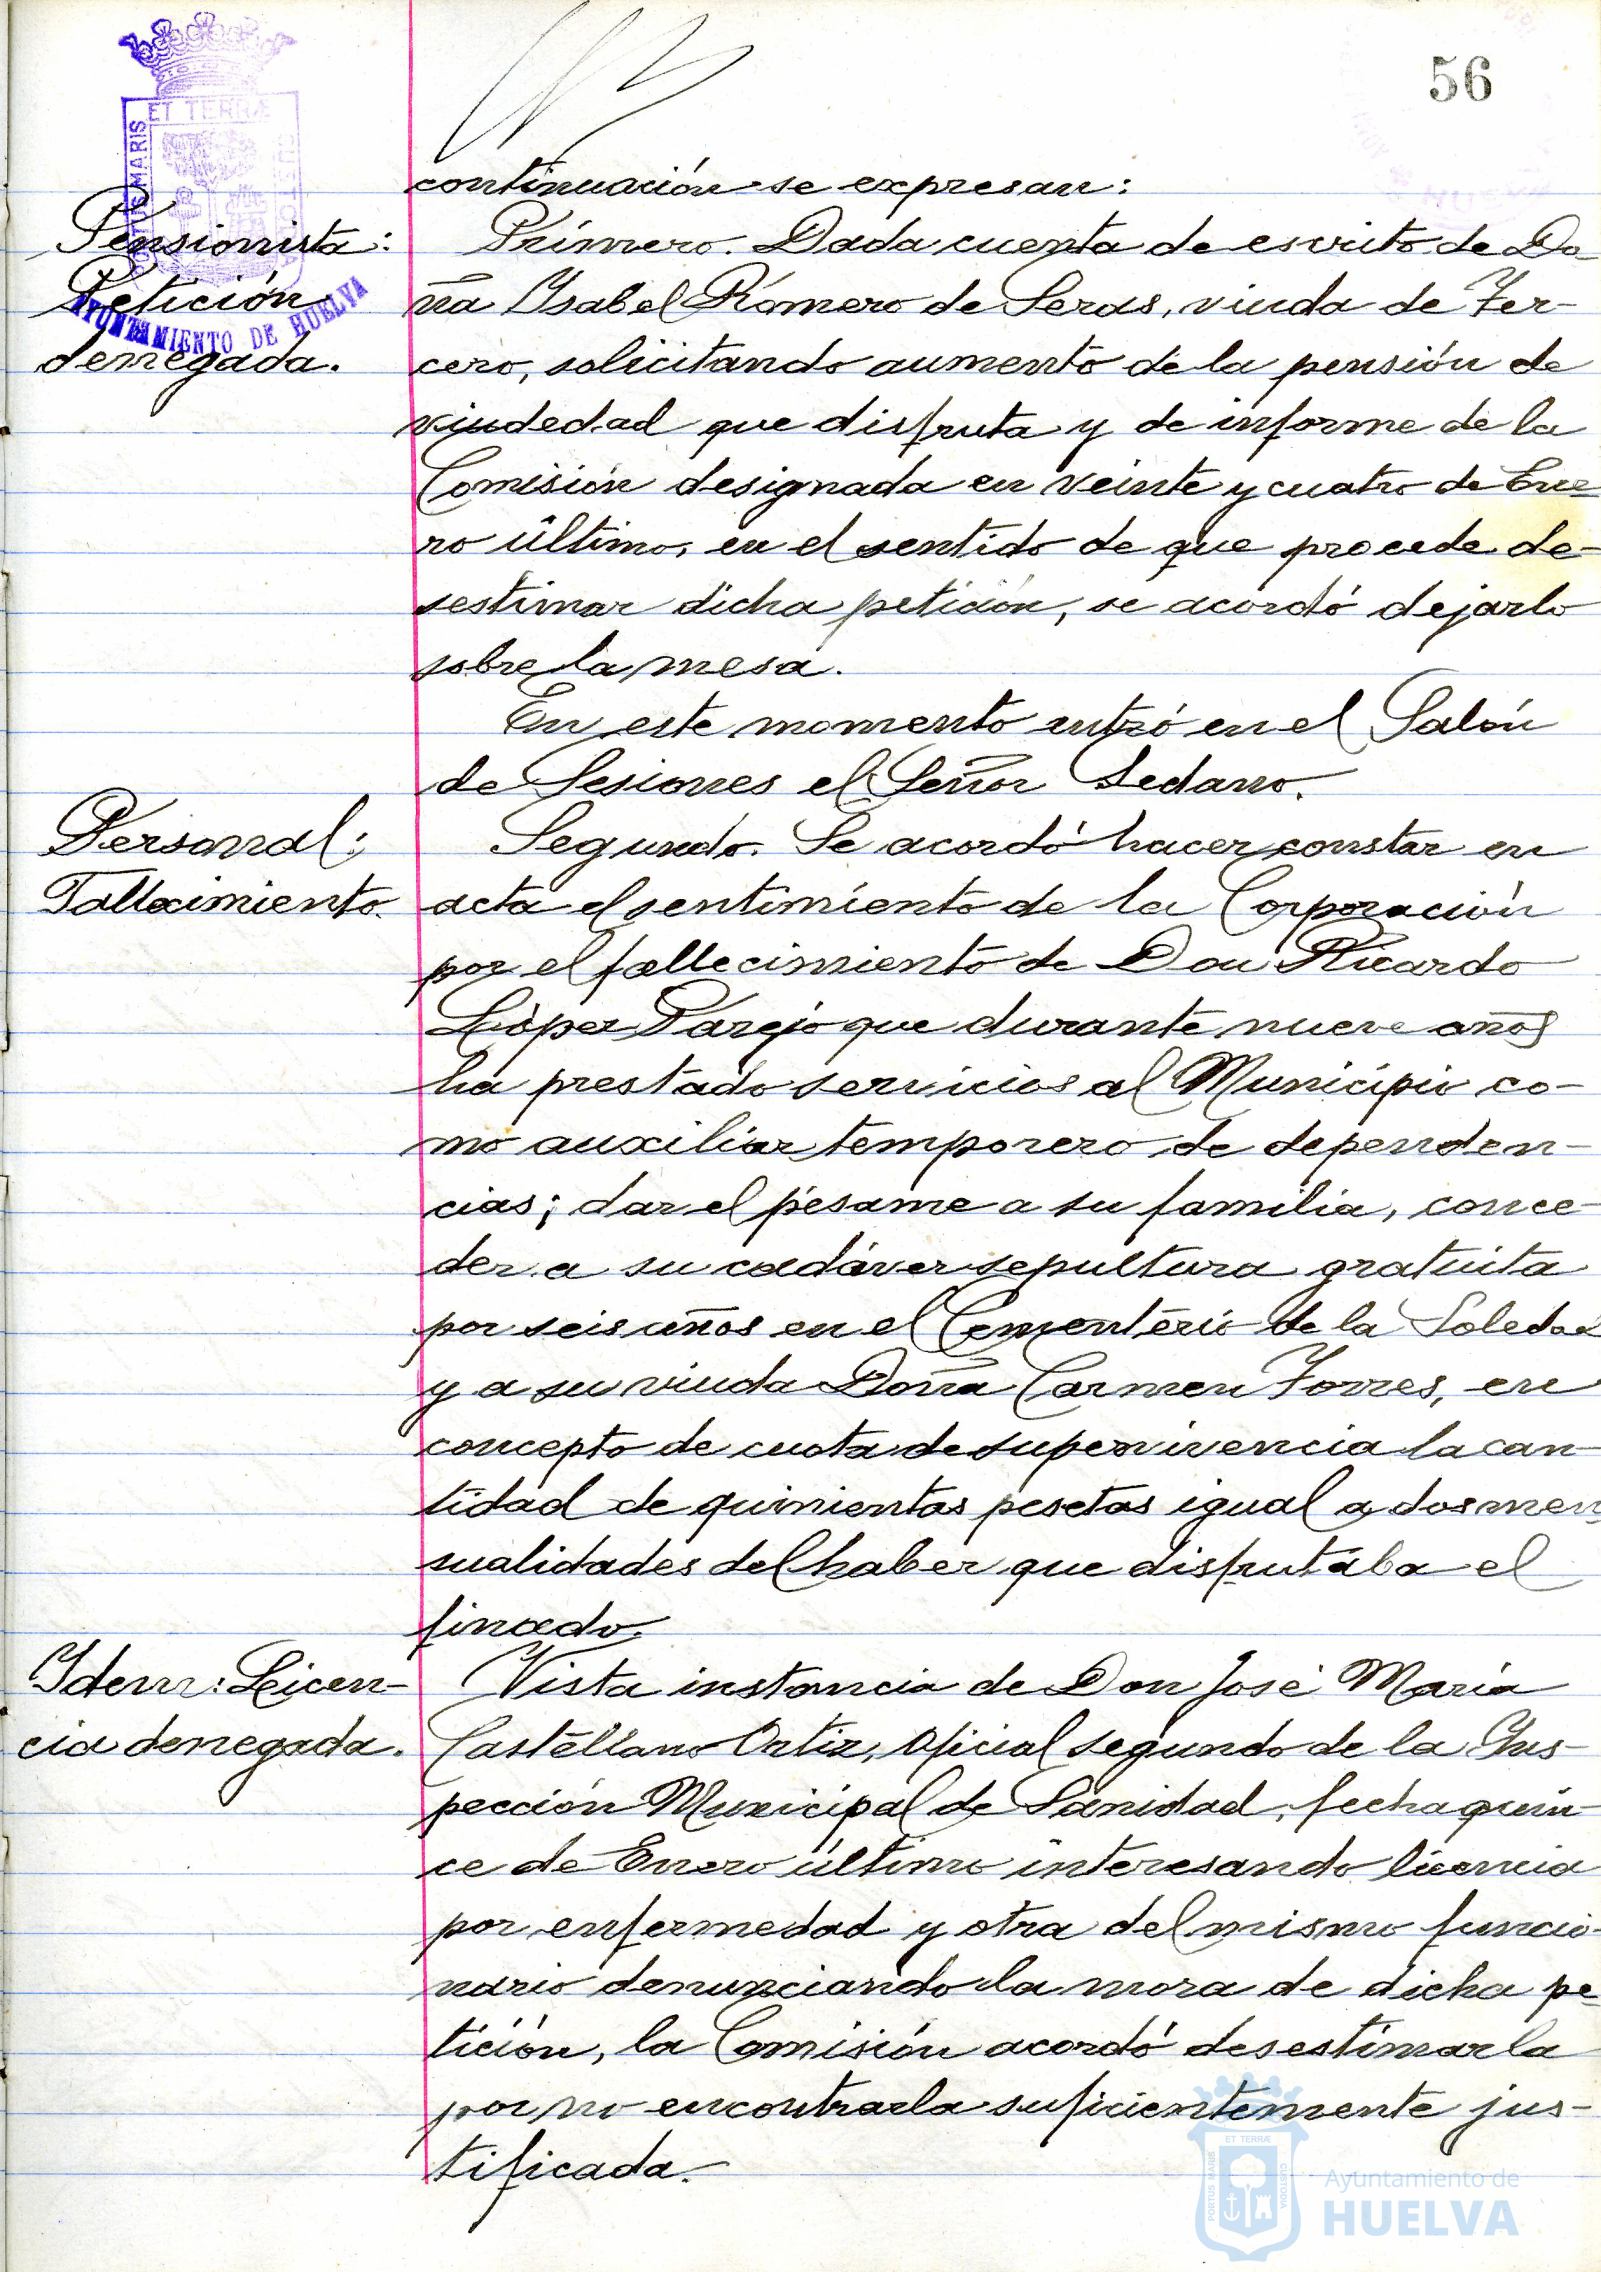 56
PORTUS MARIS ET TERRÆ CUSTODIA
AYUNTAMIENTO DE HUELVA
continuación se expresan:
Pensionista:
Petición
denegada.
Primero. Dada cuenta de escrito de Do-
ña Ysabel Romero de Seras, viuda de Ter-
cero, solicitando aumento de la pensión de
viudedad que disfruta y de informe de la
Comisión designada en veinte y cuatro de Ene-
ro último, en el sentido de que procede de-
sestimar dicha petición, se acordó dejarlo
sobre la mesa.
En este momento entró en el Salón
de Sesiones el Señor Sedano.
Personal:
Fallecimiento.
Segundo. Se acordó hacer constar en
acta el sentimiento de la Corporación
por el fallecimiento de Don Ricardo
López Parejo que durante nueve años
ha prestado servicios al Municipio co-
mo auxiliar temporero de dependen-
cias; dar el pésame a su familia, conce-
der a su cadáver sepultura gratuita
por seis años en el Cementerio de la Soledad
y a su viuda Doña Carmen Torres, en
concepto de cuota de supervivencia la can-
tidad de quinientas pesetas igual a dos men-
sualidades del haber que disfrutaba el
finado.
Ydem: Licen-
cia denegada.
Vista instancia de Don José María
Castellano Ortiz, Oficial segundo de la Yns-
pección Municipal de Sanidad, fecha quin-
ce de Enero último interesando licencia
por enfermedad y otra del mismo funcio-
nario denunciando la mora de dicha pe-
tición, la Comisión acordó desestimarla
por no encontrarla suficientemente jus-
tificada.
PORTUS MARIS ET TERRÆ CUSTODIA
Ayuntamiento de
HUELVA